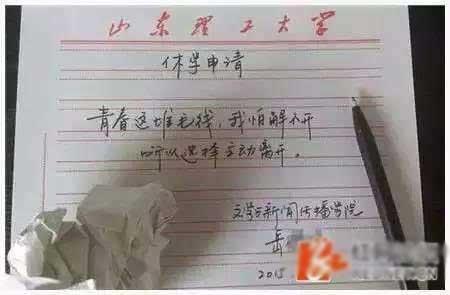 山东理工大学
休学申请
青春这堆毛线，我怕解不开
所以选择主动离开。
文学与新闻传播学院
岳
2015